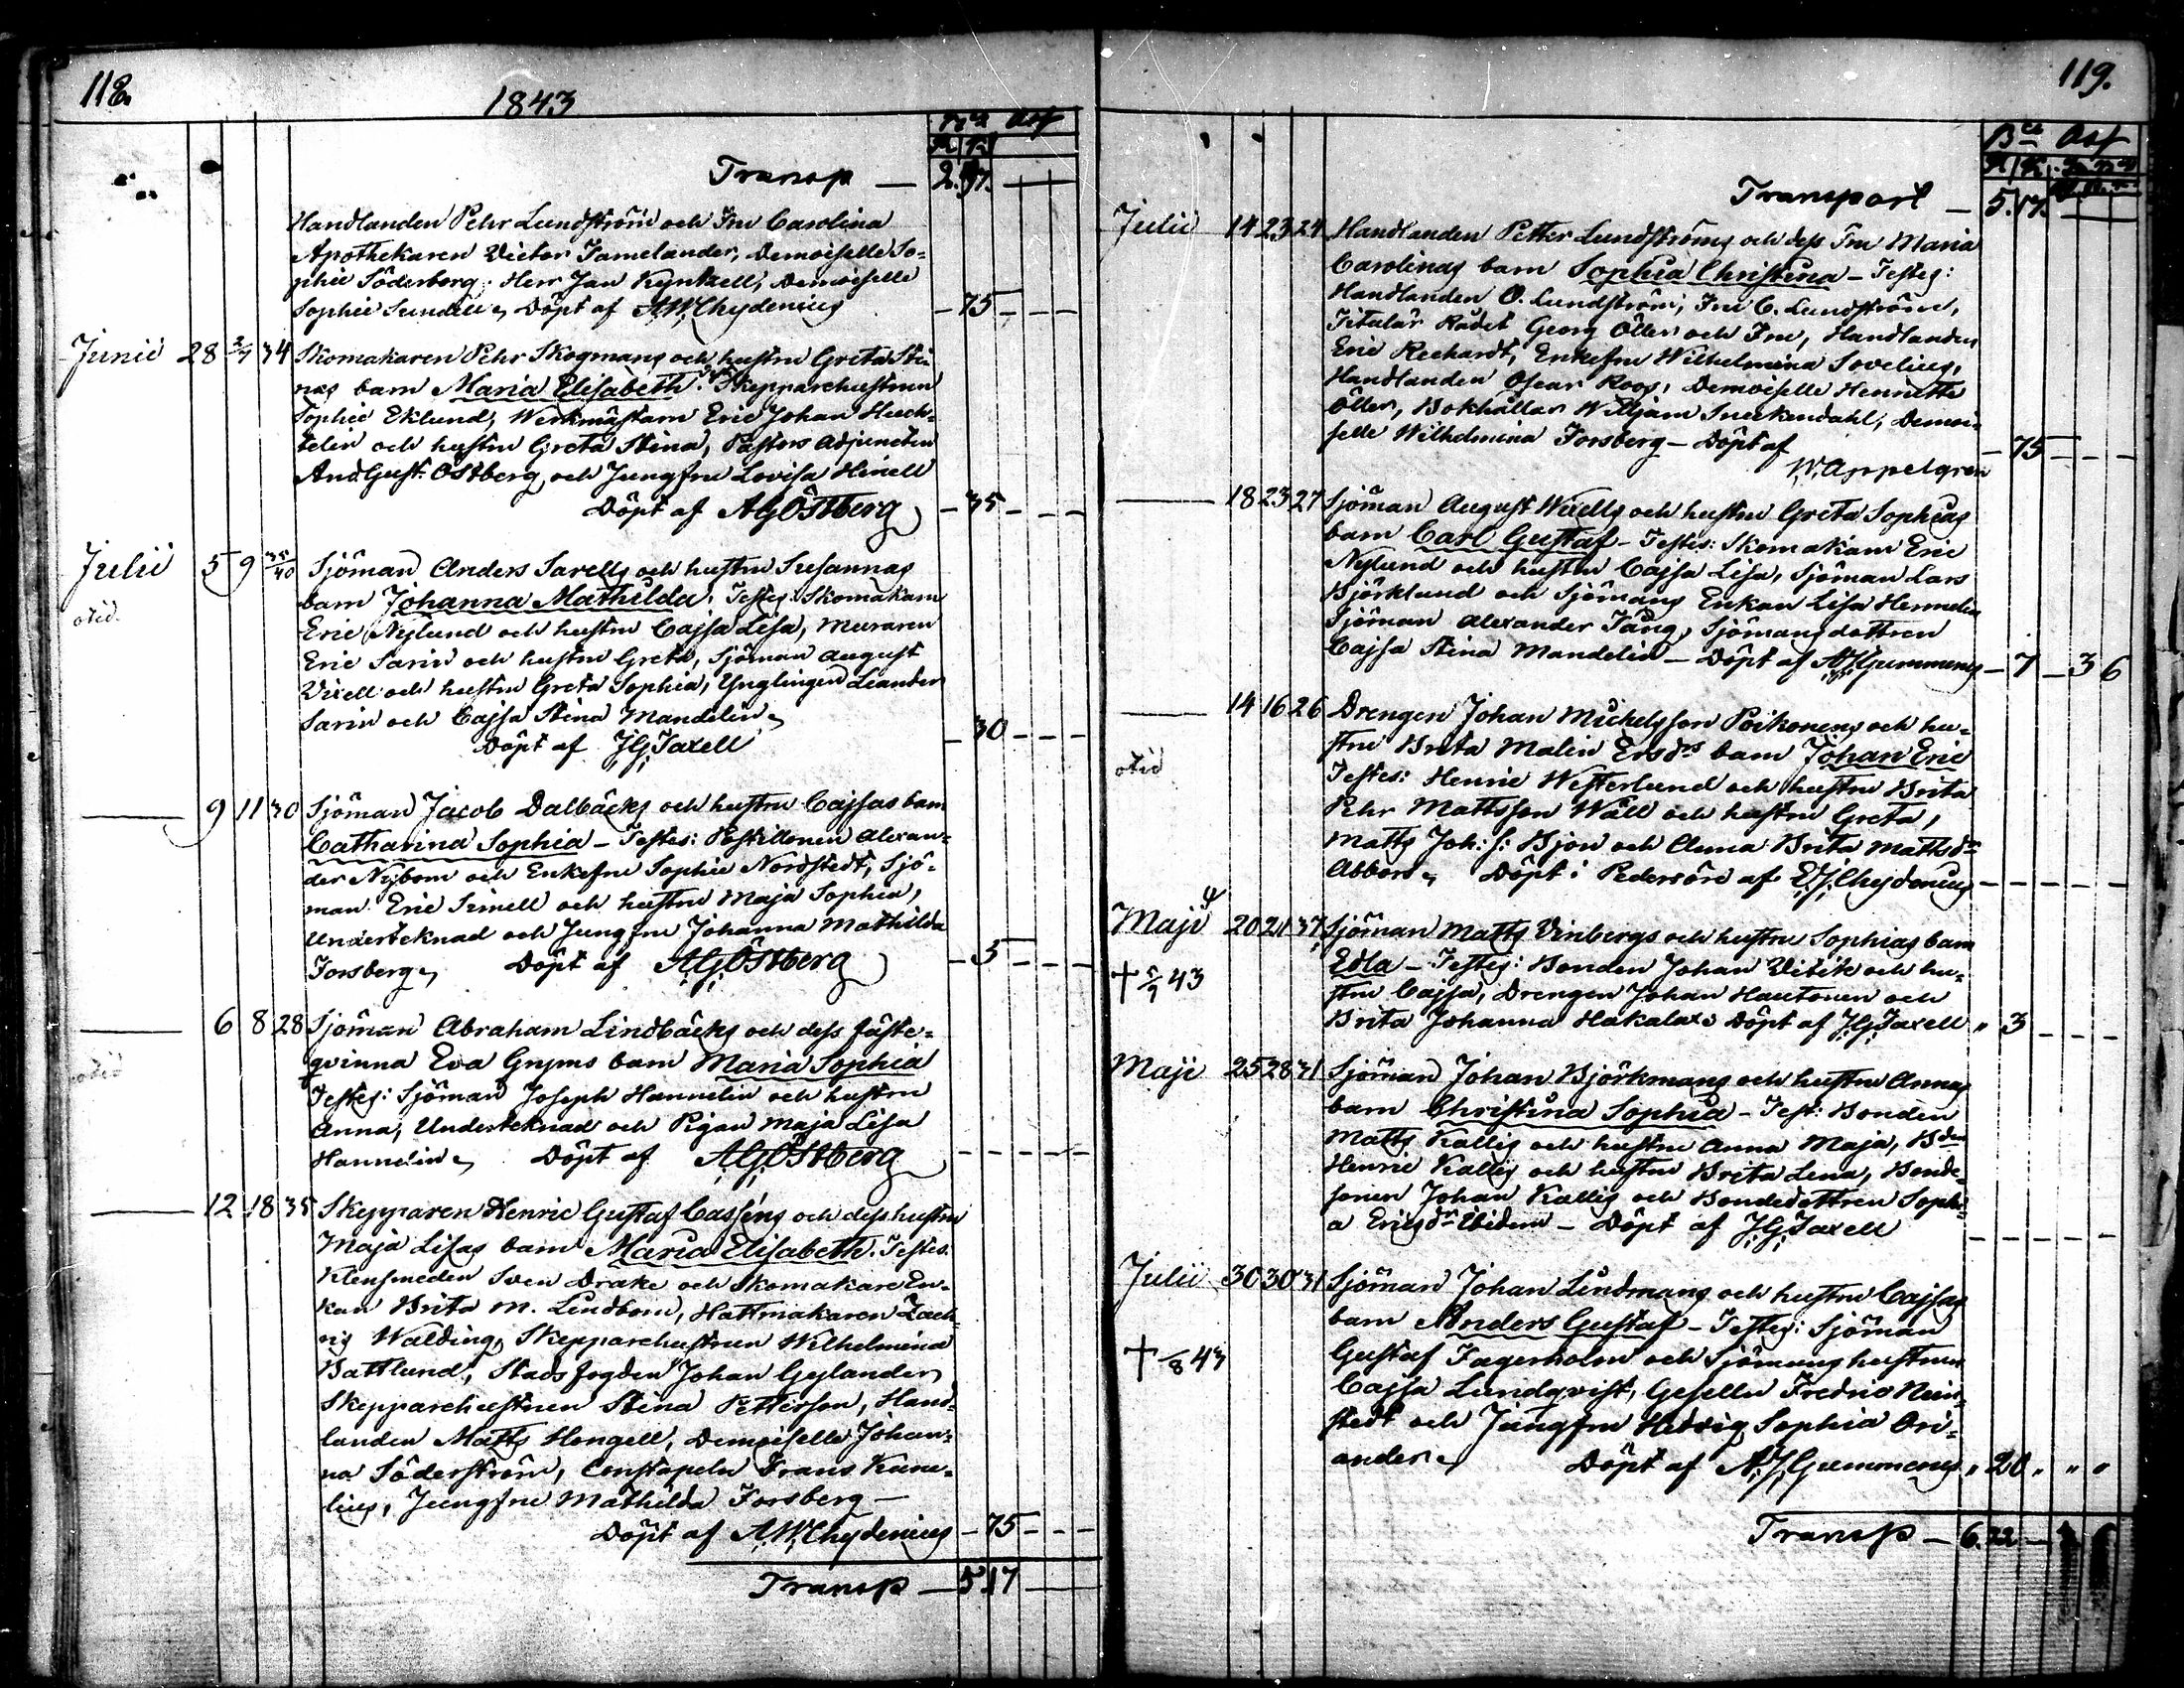 118.
1843
Bca Asf
R K
Transp — 2. 97.
Handlanden Pehr Lundström och Fru Carolina
Apothekaren Victor Tamelander, Demoiselle So=
phie Söderborg. Herr Jan Kyntzell, Demoiselle
Sophie Sundin, Döpt af A.W. Chydenius — 75 — — —
Junii 28 2/7 34 Skomakaren Pehr Skogmans och hustru Greta Sti=
nas barn Maria Elisabeth. Skepparehustrun
Sophie Eklund, Werkmästarn Eric Johan Huch=
telin och hustru Greta Stina, Pastors Adjuncten
And. Gust. Östberg, och Jungfru Lovisa Hinell
Döpt af AGÖstberg — 35 — — —
Julii 5 9 35/40 Sjöman Anders Sarells och hustru Susannas
otid. barn Johanna Mathilda. Testes: Skomakarn
Eric Nylund och hustru Cajsa Lisa, Muraren
Eric Sarin och hustru Greta, Sjöman August
Wixell och hustru Greta Sophia, Ynglingen Leander
Sarin och Cajsa Stina Mandelin,
Döpt af J.G. Taxell — 30 — — —
9 11 30 Sjöman Jacob Dalbäcks och hustru Cajsas barn
Catharina Sophia — Testes: Postillonen Alexan=
der Nybom och Enkefru Sophie Nordstedt, Sjö=
man Eric Sinell och hustru Maja Sophia,
Undertecknad och Jungfru Johanna Mathilda
Forsberg, Döpt af A.G. Östberg — 5 — — —
6 8 28 Sjöman Abraham Lindbäcks och dess fäste=
otid qvinna Eva Gryms barn Maria Sophia
Testes: Sjöman Joseph Hannelin och hustru
Anna, Undertecknad och Pigan Maja Lisa
Hannelin, Döpt af A.G. Östberg — — — — —
12 18 35 Skepparen Henric Gustaf Casséns och dess hustru
Maja Lisas barn Maria Elisabeth. Testes:
Klensmeden Sven Drake och Skomakare En=
kan Brita M. Lindbom, Hattmakaren Zach=
ris Walding, Skepparehustrun Wilhelmina
Battlund, Stads fogden Johan Gylander,
Skepparehustrun Stina Petterson, Hand=
landen Matts Hongell, Demoiselle Johan=
na Söderström, Constapeln Frans Kune=
lius, Jungfru Mathilda Forsberg —
Döpt af A.W. Chydenius — 75 — — —
Transp — 5.17
119.
Bca Asf
Transport — 5.17.
Julii 14 23 24 Handlanden Petter Lundströms och dess Fru Maria
Carolinas barn Sophia Christina — Testes:
Handlanden O. Lundström, Fru C. Lundström,
Titulär Rådet Georg Öller och Fru, Handlanden
Eric Reehardt, Enkefru Wilhelmina Sovelius,
Handlanden Oscar Roos, Demoiselle Henriette
Öller, Bokhållar William Sneckendahl, Demoi=
selle Wilhelmina Forsberg — Döpt af — 75 — — —
W. Appelgren
18 23 27 Sjöman August Wixells och hustru Greta Sophias
barn Carl Gustaf — Testes: Skomakarn Eric
Nylund och hustru Cajsa Lisa, Sjöman Lars
Björklund och Sjömans Enkan Lisa Hermelin
Sjöman Alexander Tång, Sjömansdottren
Cajsa Stina Mandelin — Döpt af A.J. Gummerus — 7 — 3 6
14 16 26 Drengen Johan Michelsson Poikonens och hu=
otid stru Brita Malin Ersdrs barn Johan Eric
Testes: Henric Westerlund och hustru Brita
Pehr Mattsson Wäll och hustru Greta,
Matts Joh: s: Björn och Anna Brita Mattsdr
Abbors, Döpt i Pedersöre af E.J. Chydenius — — — — —
Maji 20 21 37 Sjöman Matts Vinbergs och hustru Sophias barn
† 5/7 43 Edla — Testes: Bonden Johan Witick och hu=
stru Cajsa, Drengen Johan Hautonen och
Brita Johanna Hakalax. Döpt af J.G. Taxell " 3 — — —
Maji 25 28 31 Sjöman Johan Björkmans och hustru Annas
barn Christina Sophia — Test: Bonden
Matts Kallis och hustru Anna Maja, Bden
Henric Kallis och hustru Brita Lena, Bonde=
sonen Johan Kallis och Bondedottren Sophi=
a Ericsdr Ibidem — Döpt af J.G. Taxell — — — — —
Julii 30 30 31 Sjöman Johan Lindmans och hustru Cajsas
barn Anders Gustaf — Testes: Sjöman
† /8 43 Gustaf Fagerholm och Sjömans hustrun
Cajsa Lundqvist, Gesellen Fredric Nein=
stedt och Jungfru Hedvig Sophia Ori=
ander. Döpt af A.J. Gummerus " 20 " " "
Transp — 6.22 —